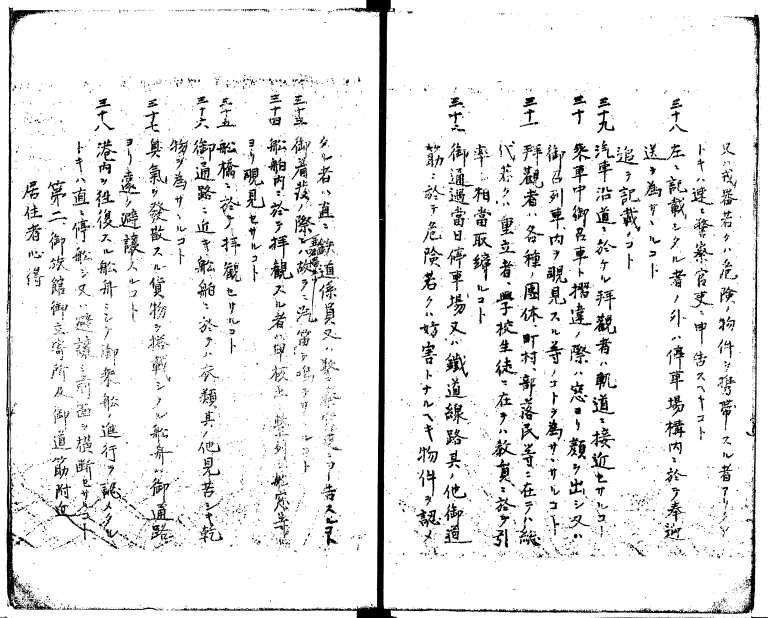 又ハ戎器若クハ危険ノ物件ヲ携帯スル者アリタル
トキハ速ニ警察官吏ニ申告スヘキコト
三十八 左ニ記載シタル者ノ外ハ停車場構内ニ於テ奉迎
送ヲ為サヽルコト
追テ記載ノコト
三十九 汽車沿道ニ於ケル拝観者ハ軌道ニ接近セサルコト
三十 乗車中御召車ト摺違ノ際ハ窓ヨリ顔ヲ出シ又ハ
御召列車内ヲ覗見スル等ノコトヲ為サヽルコト
三十一 拝観者ハ各種ノ團体、町村、部落民等ニ在テハ総
代若クハ重立者、學校生徒ニ在テハ教員ニ於テ引
率シ相當取締ルコト
三十二 御通過當日停車場又ハ鐵道線路其ノ他御道
筋ニ於テ危険若クハ妨害トナルヘキ物件ヲ認メ
タル者ハ直ニ鉄道係員又ハ警察官吏ニ申告スルコト
三十三 御着発ノ際ハ故ラニ汽笛ヲ鳴ラサヽルコト
三十四 船舶内ニ於テ拝観スル者ハ甲板上ニ整列シ舷窓等
ヨリ覗見セサルコト
三十五 船橋ニ於テ拝観セサルコト
三十六 御通路ニ近キ船舶ニ於テハ衣類其ノ他見苦シキ乾
物ヲ為サヽルコト
三十七 臭気ヲ發散スル貨物ヲ搭載シタル船舟ハ御通路
ヨリ遠ク避譲スルコト
三十八 港内ヲ往復スル船舟ニシテ御乗船ノ進行ヲ認メタル
トキハ直ニ停船シ又ハ避譲シ前面ヲ横断セサルコト
第二、御旅館御立寄所及御道筋附近
居住者心得